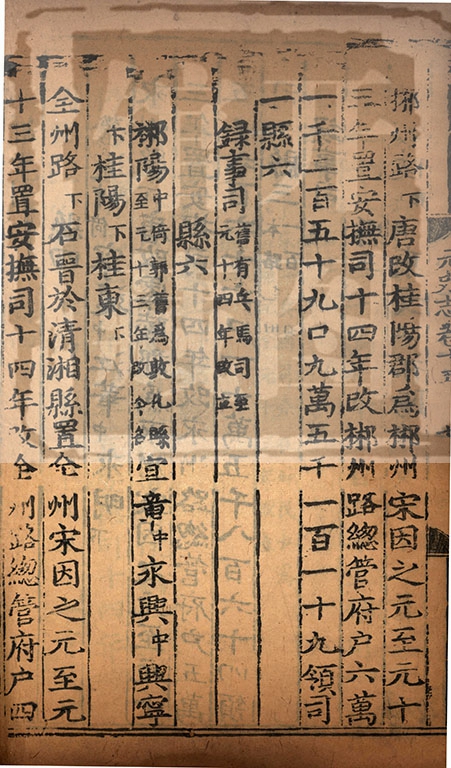 郴州路下唐改桂陽郡爲郴州宋因之元至元十
三年置安撫司十四年改郴州路總管府戶六萬
一千二百五十九口九萬五千一百一十九領司
一縣六
録事司舊有兵馬司至元十四年改立
縣六
郴陽中倚郭舊爲敦化縣至元十三年改今名宜章中永興中興寧
下桂陽下桂東下
全州路下石晉於清湘縣置全州宋因之元至元
十三年置安撫司十四年改全州路總管府戶四